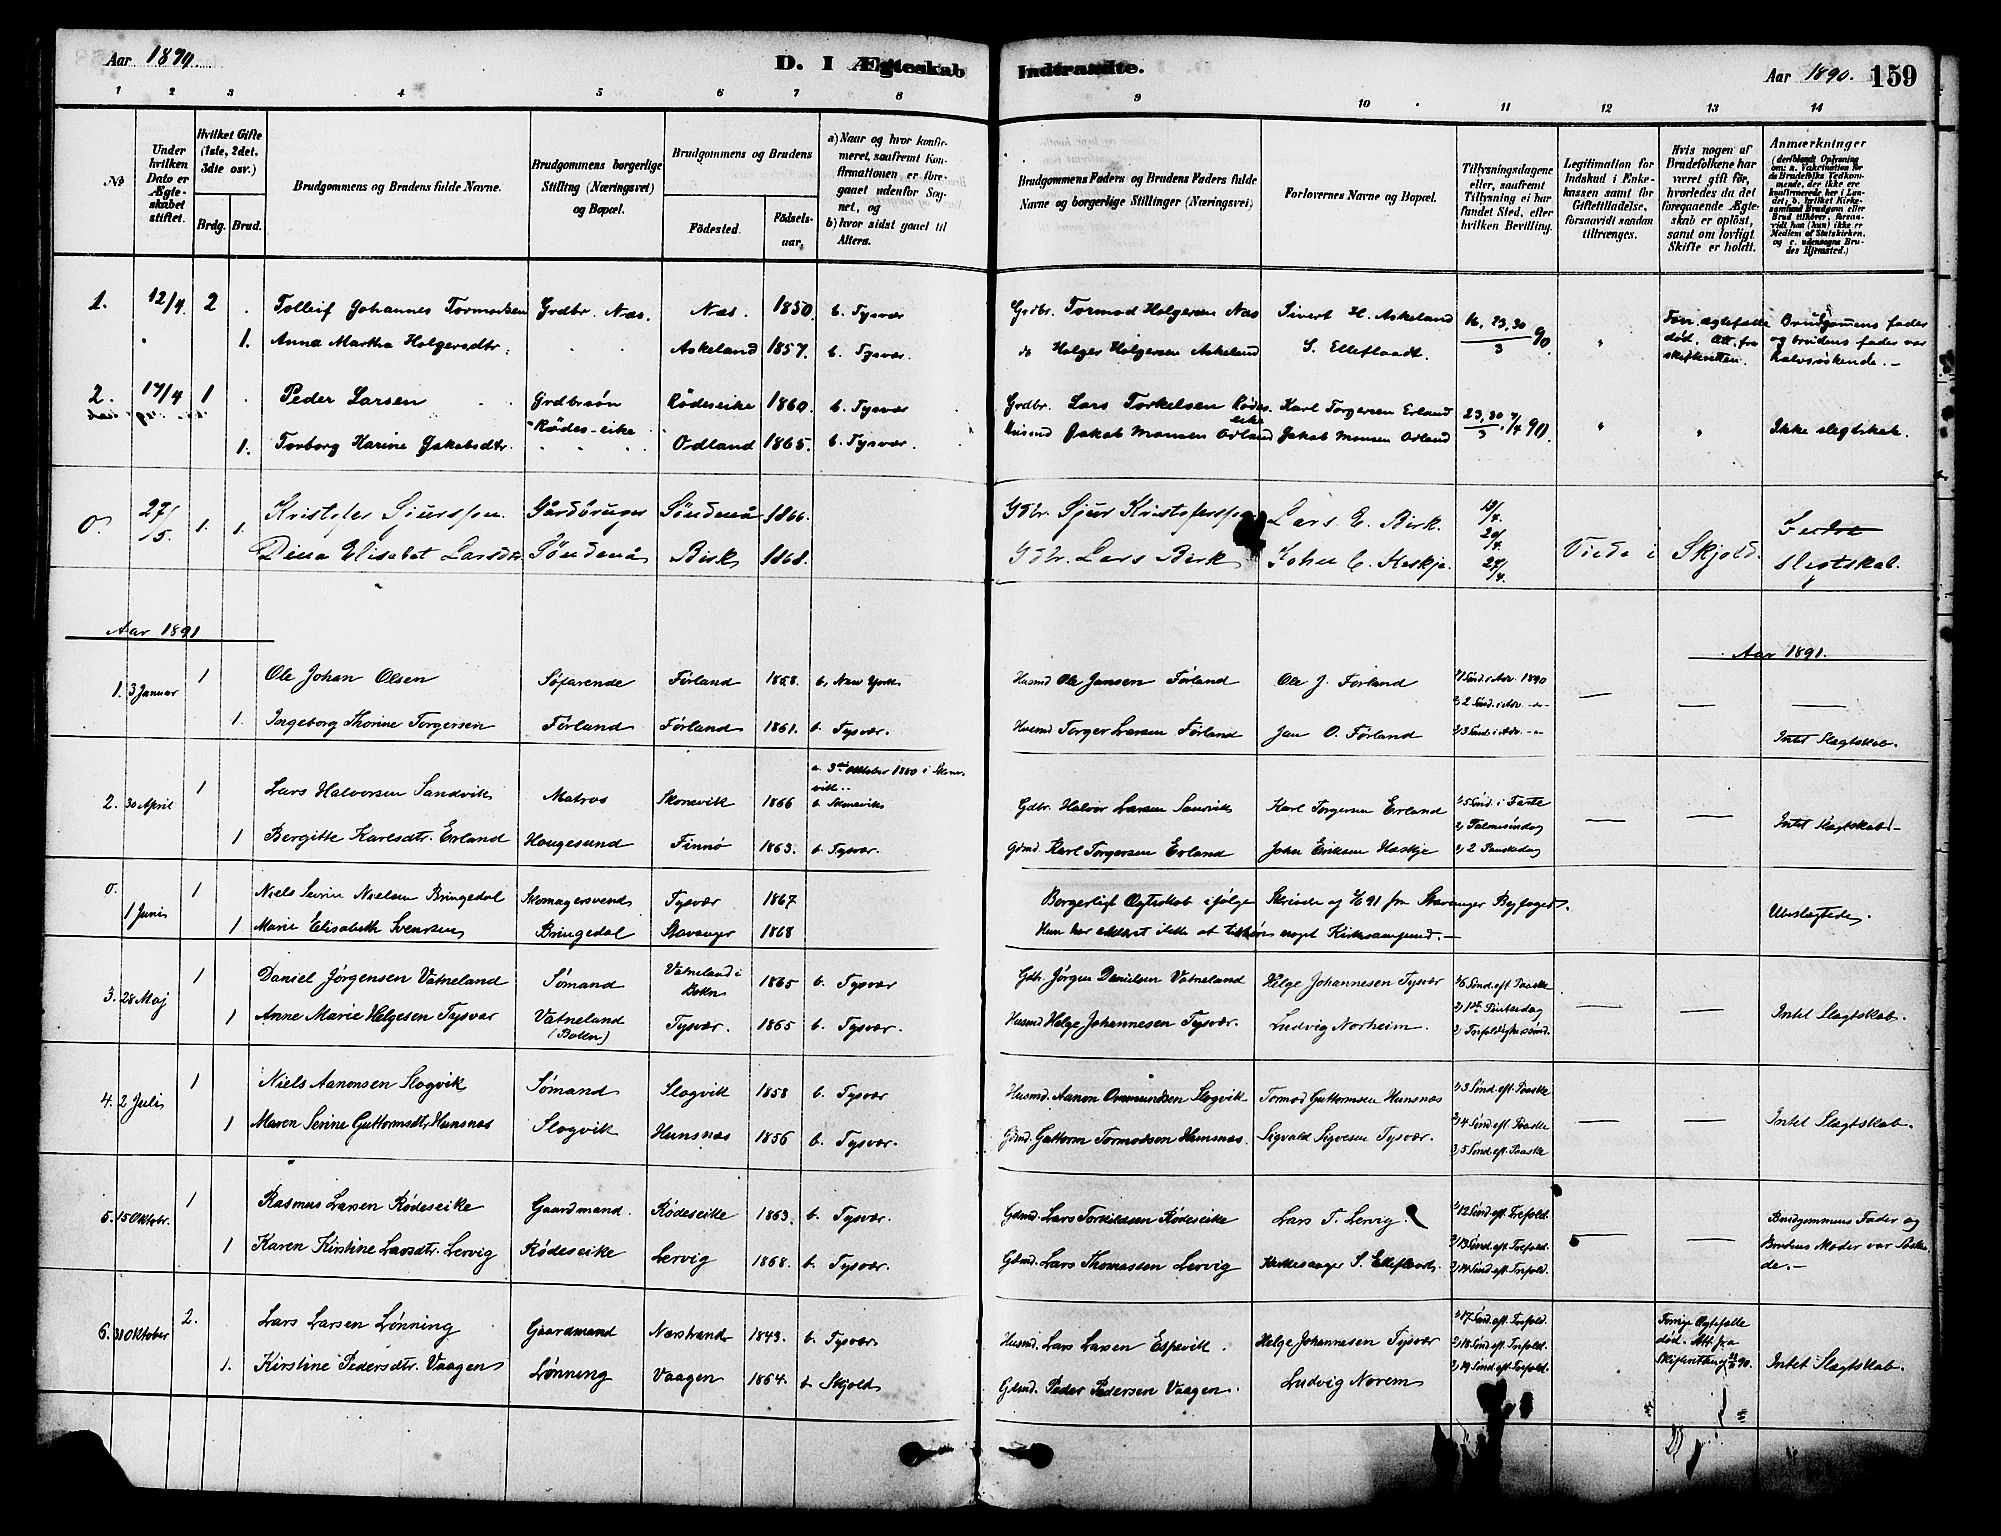 Aar 1890.
D. I Ægteskab
Indtraadte.
Aar 1890. 159
1 2 3 4 5 6 7 8 9 10 11 12 13 14
No
Under hvilken Dato er Ægteskabet stiftet.
Hvilket Gifte (1ste, 2det, 3die osv.)
Brdg. Brud.
Brudgommens og Brudens fulde Navne.
Brudgommens borgerlige Stilling (Næringsvei) og Bopæl.
Brudgommens og Brudens
Fødested.
Fødselsaar.
a) Naar og hvor konfirmeret, saafremt Konfirmationen er foregaaet udenfor Sognet, og
b) hvor sidst gaaet til Alters.
Brudgommens Faders og Brudens Faders fulde Navne og borgerlige Stillinger (Næringsvei)
Forlovernes Navne og Bopæl.
Tillysningsdagene eller, saafremt Tillysning ei har fundet Sted, efter hvilken Bevilling.
Legitimation for Indskud i Enkekassen samt for Giftetilladelse, forsaavidt saadan tiltrænges.
Hvis nogen af Brudefolkene har været gift før, hvorledes da det foregaaende Ægteskab er opløst, samt om lovligt Skifte er holdt.
Anmærkninger
1. 12/4 2 . Tolleif Johannes Tormodsen Grdbr. Næs. Næs. 1850. b. Tysvær Grdbr. Tormod Holgersen Næs Sivert H. Askeland 16, 23, 30/3 90. " Forr. ægtefælle død. Att. fra skifteretten. Brudgomens fader og brudens fader var halvsøskende.-
" 1. Anna Martha Holgersdtr. " " Askeland 1857. b. Tysvær. do Holger Holgersen Askeland S. Ellefladt.
2. 17/4 1 . Peder Larsen Grdbrsøn Rødeseike Rødeseike 1860. b. Tysvær Grdbr. Lars Torkelsen Rødeseike Karl Torgersen Erland 23, 30/3, 7/4 90. " " Ikke slegtskab.
1. Torborg Karine Jakobsdtr. " " " Odland 1865. b. Tysvær. Husmd Jakob Monsen Odland Jakob Monsen Odland
0. 27/5 1. Kristofer Sjurssøn. Gårdbruger Søndenå 1866. Gdbr. Sjur Kristoferssøn Lars E. Birk. 13/4. 20/4. 27/4. Viede i Skjold. Slegtskab.
1. Dina Elisabet Larsdtr. Søndenå Birk 1868. Gdbr. Lars Birk John E. Heskje.
Aar 1891
Aar 1891.
1. 3 Januar 1 Ole Johan Olsen Søfarende Førland 1858. b. New York Husmd Ole Jansen Førland Ole J. Førland 1) 1 Sønd. i Adv. 1890 — — —
1. Ingeborg Thorine Torgersen Førland Førland 1861. b. Tysvær. Husmd Torger Larsen Førland Jan O. Førland 2) 2 Sønd. i Adv. -"- 3) 3 Sønd. i Adv. -"- Intet Slægtskab.
2. 30 April 1 Lars Halvorsen Sandvik Matros Skonevik 1866 a. 3die Oktober 1880 i Skonevik.. b. Skonevik Gdbr. Halvor Larsen Sandvik Karl Torgersen Erland 1) 5 Sønd. i Faste — — Intet Slægtskab.-
1 Bergitte Karlsdtr. Erland Haugesund Finnø 1863. b. Tysvær. Gdmd. Karl Torgersen Erland John Eriksen Heskje 2) Palmesøndag 3) 2 Paaskedag
0. 1 Juni 1 Niels Severin Nielsen Bringedal Skomagersvend Tysvær 1867 Borgerligt Ægteskab ifølge Skrivelse af 1/6 91 fra Stavanger Byfoged. Ubeslægtede.
1 Marie Elisabeth Svensen Bringedal Stavanger 1868 Hun har erklæret ikke at tilhøre noget Kirkesamfund.—
3. 28 Maj 1 Daniel Jørgensen Vatneland Sømand Vatneland i Bokn 1865 b. Tysvær Gdbr. Jørgen Danielsen Vatneland Helge Johannesen Tysvær 1) 6 Sønd. eft. Paaske — — Intet Slægtskab.
1 Anne Marie Helgesen Tysvær Vatneland (Bokn) Tysvær. 1865 b. Tysvær. Husmd Helge Johannesen Tysvær. Ludvig Norheim. 2) 1ste Pintsedag 3) Trefoldighedssønd.
4. 2 Juli 1 Niels Aanonsen Slogvik Sømand Slogvik 1858 b. Tysvær Husmd. Aanon Ommundsen Slogvik Tormod Guttormsen Hunsnæs 1) 3 Sønd. eft. Paaske — — Intet Slægtskab.
1 Maren Serine Guttormsdtr. Hunsnæs Slogvik Hunsnæs 1856 b. Tysvær. Gdmd. Guttorm Tormodsen Hunsnæs. Sigvald Sigvesen Tysvær. 2) 4 Sønd. eft. Paaske 3) 5 Sønd. eft. Paaske
5. 15 Oktobr. 1 Rasmus Larsen Rødeseike Gaardmand. Rødeseike 1863. b. Tysvær. Gdmd. Lars Torkildsen Rødeseike Lars T. Lervig. 1) 12 Sønd. eft. Trefold. — — Brudgommens Fader og Brudens Moder var Søskende.-
1 Karen Kirstine Larsdtr. Lervig Rødeseike Lervig 1868. b. Tysvær. Gdmd. Lars Thomassen Lervig Kirkesanger S. Ellefladt. 2) 13 Sønd. eft. Trefold. 3) 14 Sønd. eft. Trefold.
6. 31 Oktober 2. Lars Larsen Lønning Gaardmand Nerstrand 1843. b. Tysvær. Husmd. Lars Larsen Espevik. Helge Johannesen Tysvær 1) 17 Sønd. eft. Trefold. Forrige Ægtefælle død. Att. fra Skifteretten
1. Kirstine Pedersdtr. Vaagen Lønning Vaagen 1864. b. Skjold Gdmd. Peder Pedersen Vaagen. Ludvig Norem 2) 18 Sønd. eft. Trefold. 3) 19 Sønd. eft. Trefold. Intet Slægtskab.